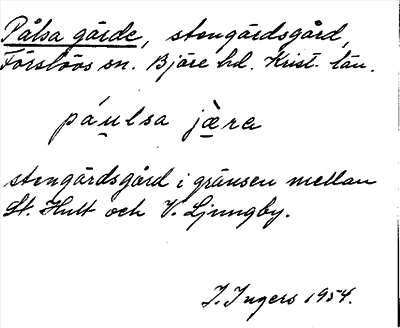 Pålsa gärde, stengärdsgård,
Förslövs sn. Bjäre hd. Krist. län.
páulsa jæ̀ra
stengärdsgård i gränsen mellan
St. Hult och V. Ljungby.
I. Ingers 1954.